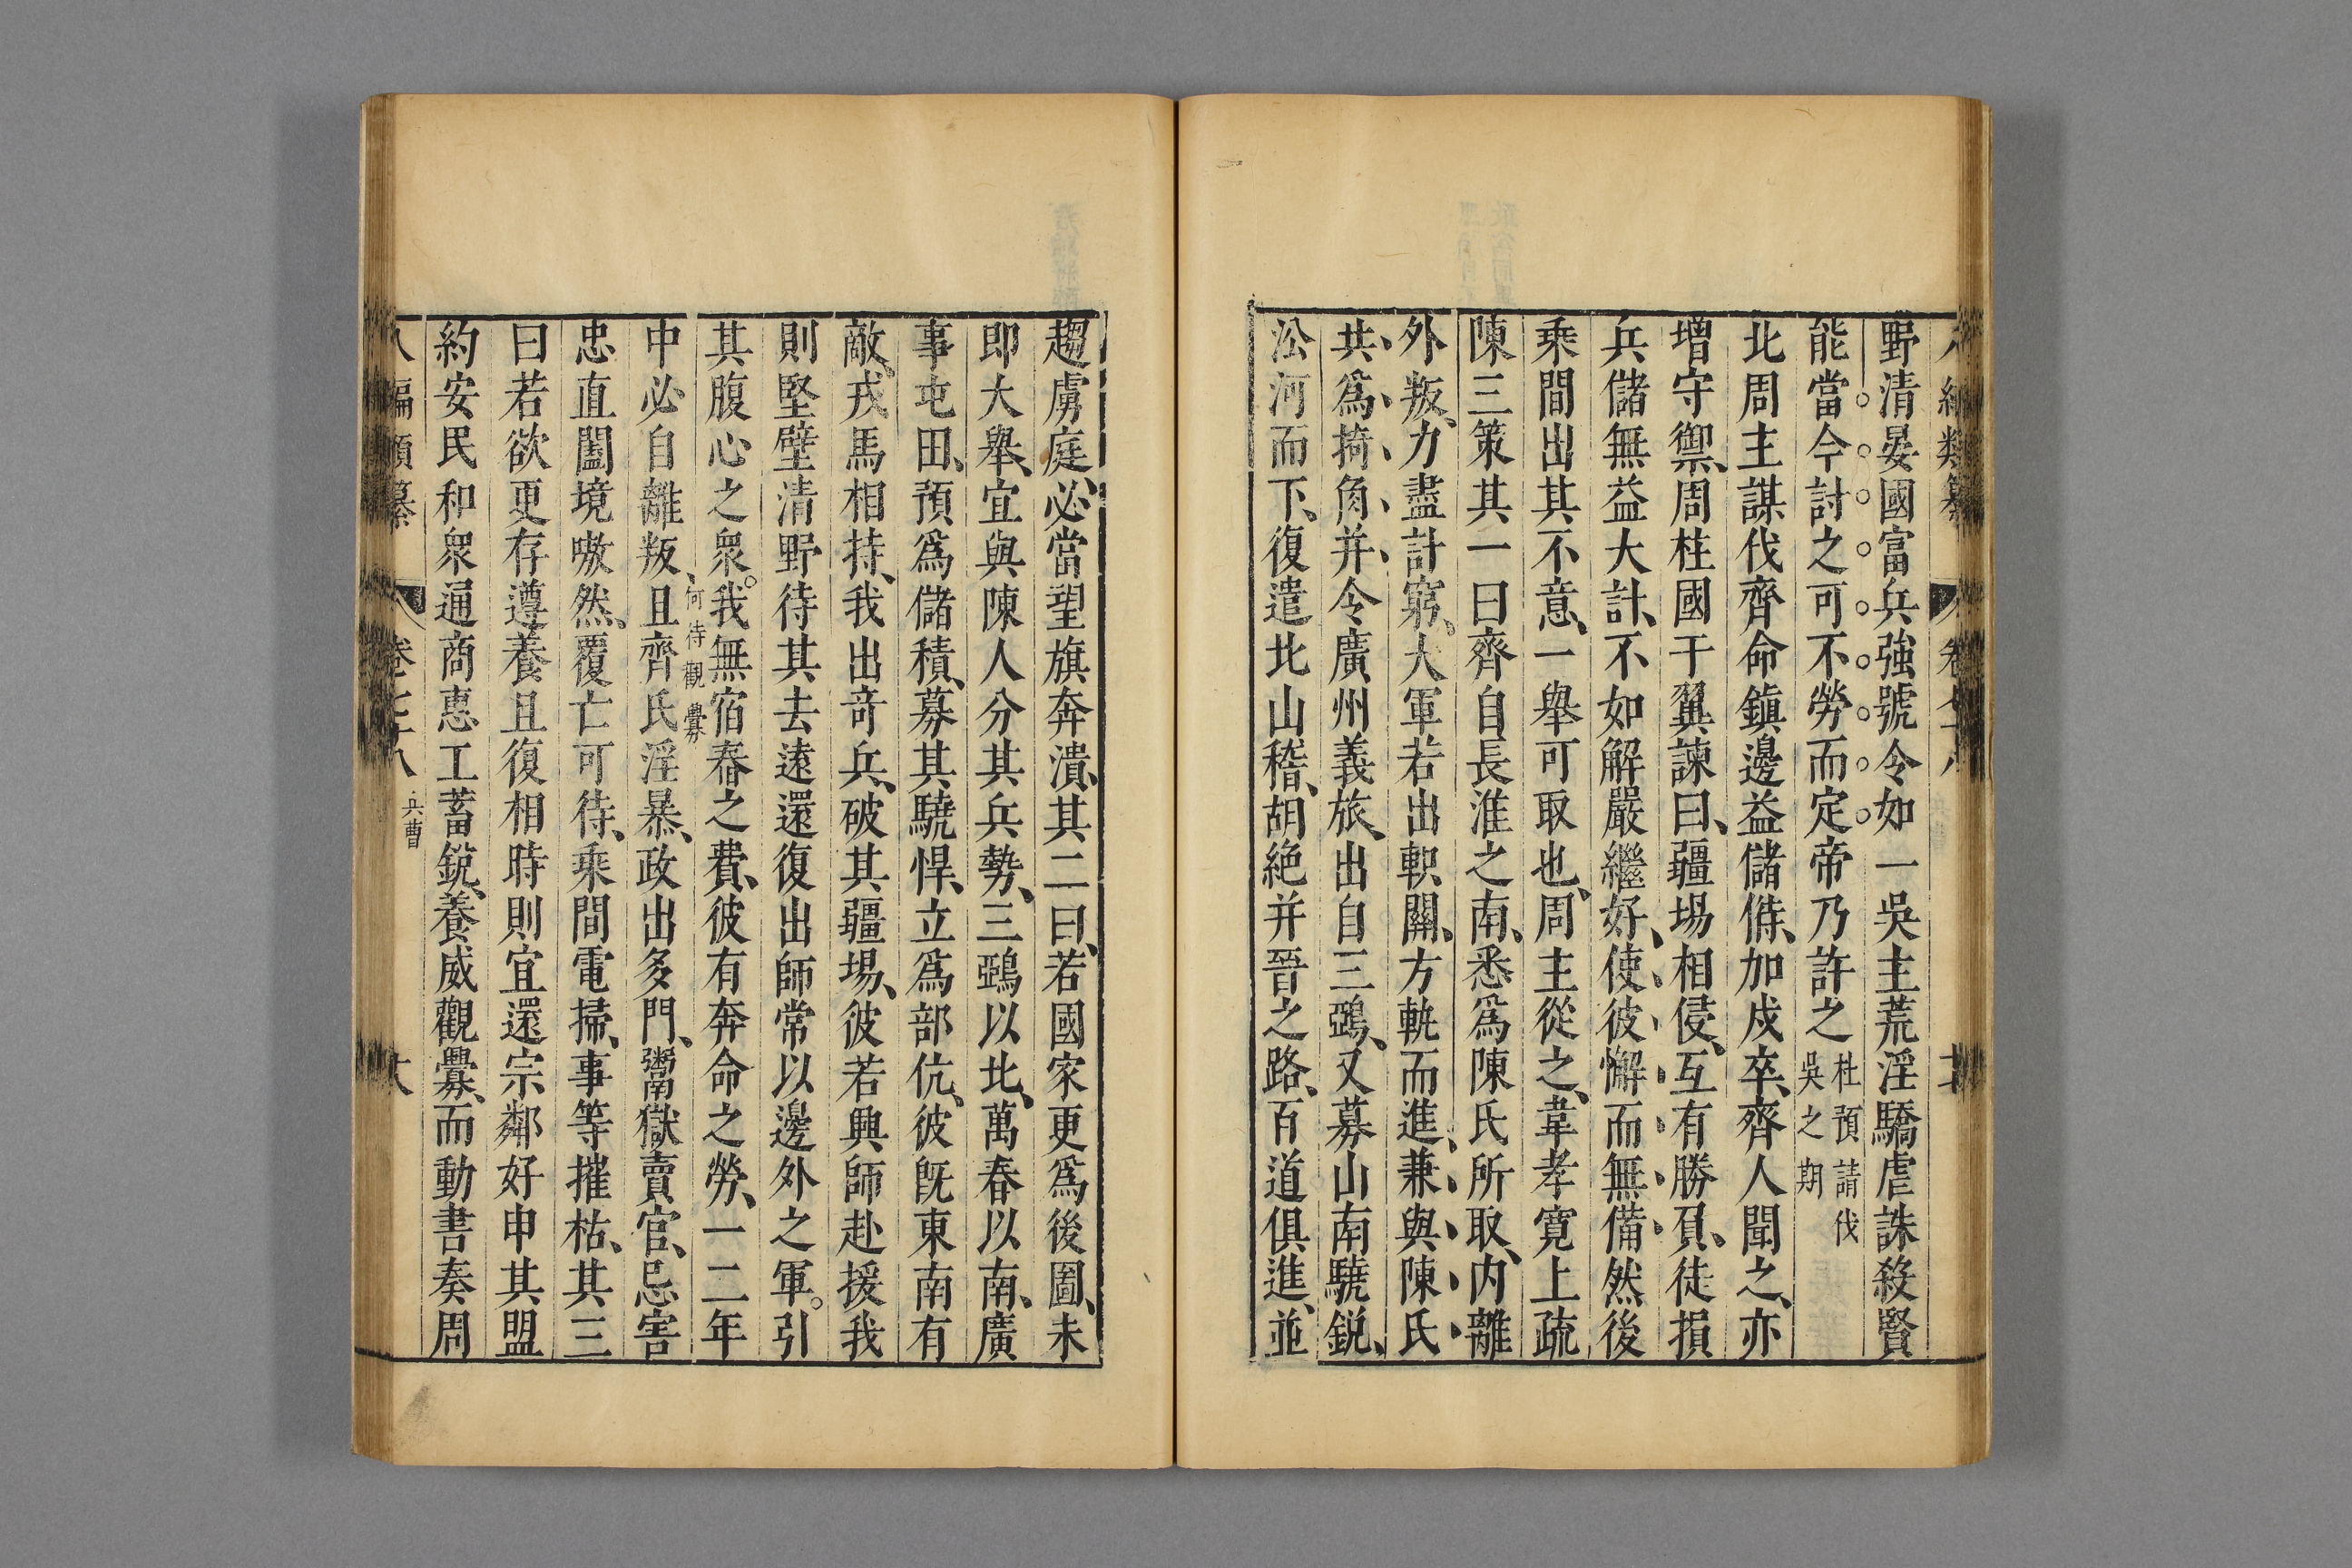 野清晏國富兵強號令如一吳主荒淫驕虐誅殺賢
能當今討之可不勞而定帝乃許之杜預請伐
吳之期
北周主謀伐齊命鎮邊益儲偫、加戍卒、齊人聞之、亦
增守禦、周柱國于翼諫曰、疆埸相侵、互有勝負、徒損
兵儲無益大計、不如解嚴繼好、使彼懈而無備然後
乘間出其不意、一舉可取也、周主從之、韋孝寬上疏
陳三策其一曰齊自長淮之南、悉爲陳氏所取、内離
外叛、力盡計窮、大軍若出軹關、方軌而進、兼與陳氏
共、爲掎角、并令廣州義旅、出自三鵶、又募山南驍銳、
沿河而下、復遣北山稽、胡絶并晉之路、百道俱進、並
趨虜庭、必當望旗奔潰、其二曰、若國家更爲後圖、未
即大舉、宜與陳人分其兵勢、三鵶以北、萬春以南、廣
事屯田、預爲儲積、募其驍悍、立爲部伍、彼旣東南有
敵、戎馬相持、我出奇兵、破其疆埸、彼若興師赴援我
則堅壁清野待其去遠還復出師常以邊外之軍。引
其腹心之衆。我無宿舂之費、彼有奔命之勞、一二年
何待觀釁
中必自離叛、且齊氏淫暴、政出多門、鬻獄賣官、忌害
忠直闔境嗷然、覆亡可待、乘間電掃、事等摧枯、其三
曰若欲更存遵養且復相時則宜還宗鄰好申其盟
約安民和衆通商惠工蓄銳、養威觀釁、而動書奏周
八編類纂 卷七十八 兵曹